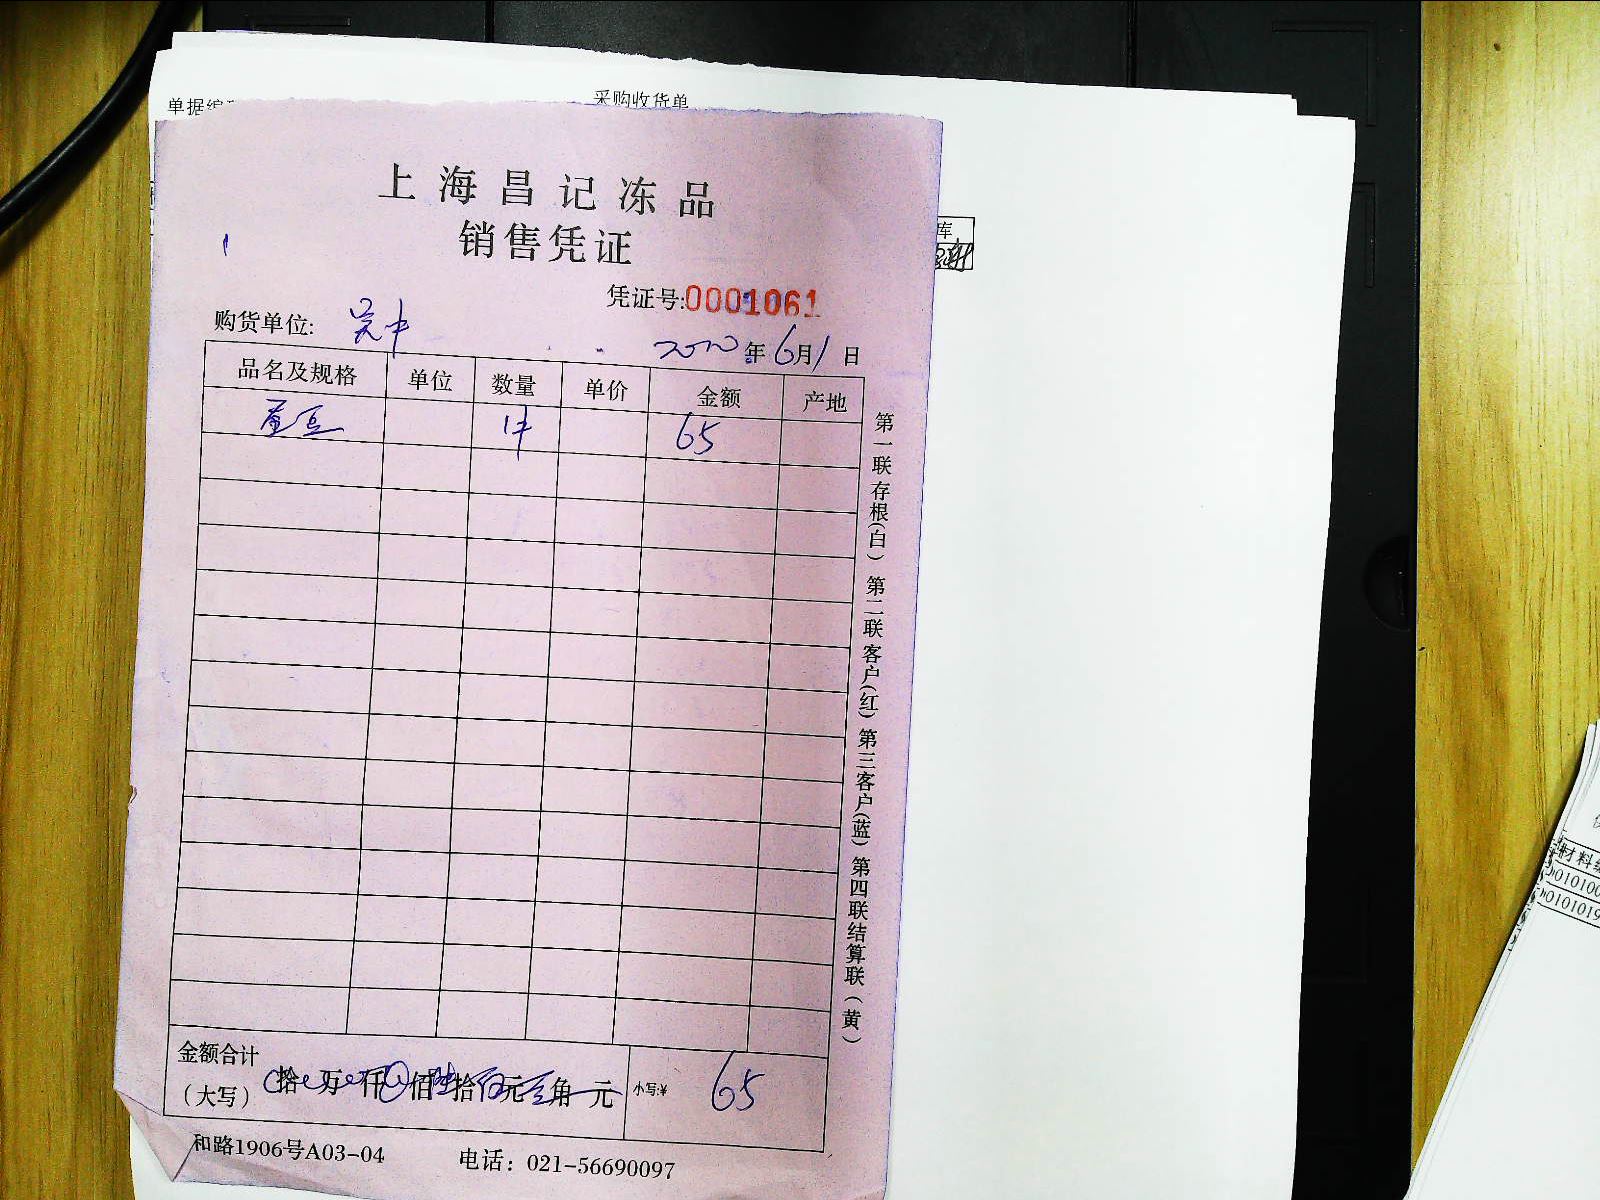 采购收货单
单据编
上海昌记冻品
销售凭证
凭证号:0001061
购货单位: 吴中
2020年6月1日
品名及规格 单位 数量 单价 金额 产地
蚕豆 1件 65
第一联存根(白) 第二联客户(红) 第三客户(蓝) 第四联结算联(黄)
金额合计
(大写) 拾 万 仟 佰 陆拾 伍元 角 元 小写:¥ 65
和路1906号A03-04 电话: 021-56690097
库
材料